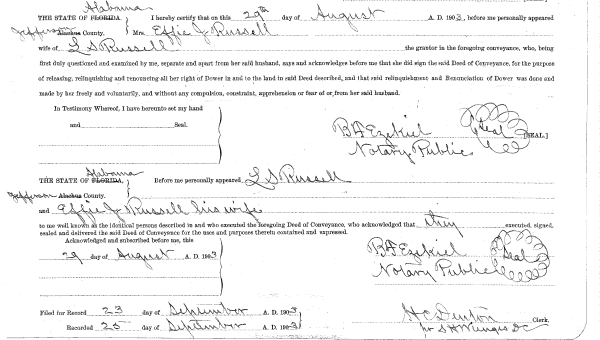 Alabama
THE STATE OF FLORIDA, I hereby certify that on this 29th day of August A. D. 1903, before me personally appeared
Jefferson Alachua County. Mrs Effie J Russell
wife of L S Russell the grantor in the foregoing conveyance, who, being
first duly questioned and examined by me, separate and apart from her said husband, says and acknowledges before me that she did sign the said Deed of Conveyance, for the purpose
of releasing, relinquishing and renouncing all her right of Dower in and to the land in said Deed described, and that said relinquishment and Renunciation of Dower was done and
made by her freely and voluntarily, and without any compulsion, constraint, apprehension or fear of or from her said husband.
In Testimony Whereof, I have hereunto set my hand
and Seal.
B A Ezekiel Seal [SEAL.]
Notary Public
Alabama
THE STATE OF FLORIDA, Before me personally appeared L S Russell
Jefferson Alachua County.
and Effie J Russell his wife
to me well known as the identical persons described in and who executed the foregoing Deed of Conveyance, who acknowledged that they executed, signed,
sealed and delivered the said Deed of Conveyance for the uses and purposes therein contained and expressed.
Acknowledged and subscribed before me, this
29 day of August A. D. 1903
B A Ezekiel Seal
Notary Public
Filed for Record 23 day of September A. D. 1903
Recorded 25 day of September A. D. 1903
H C Denton Clerk,